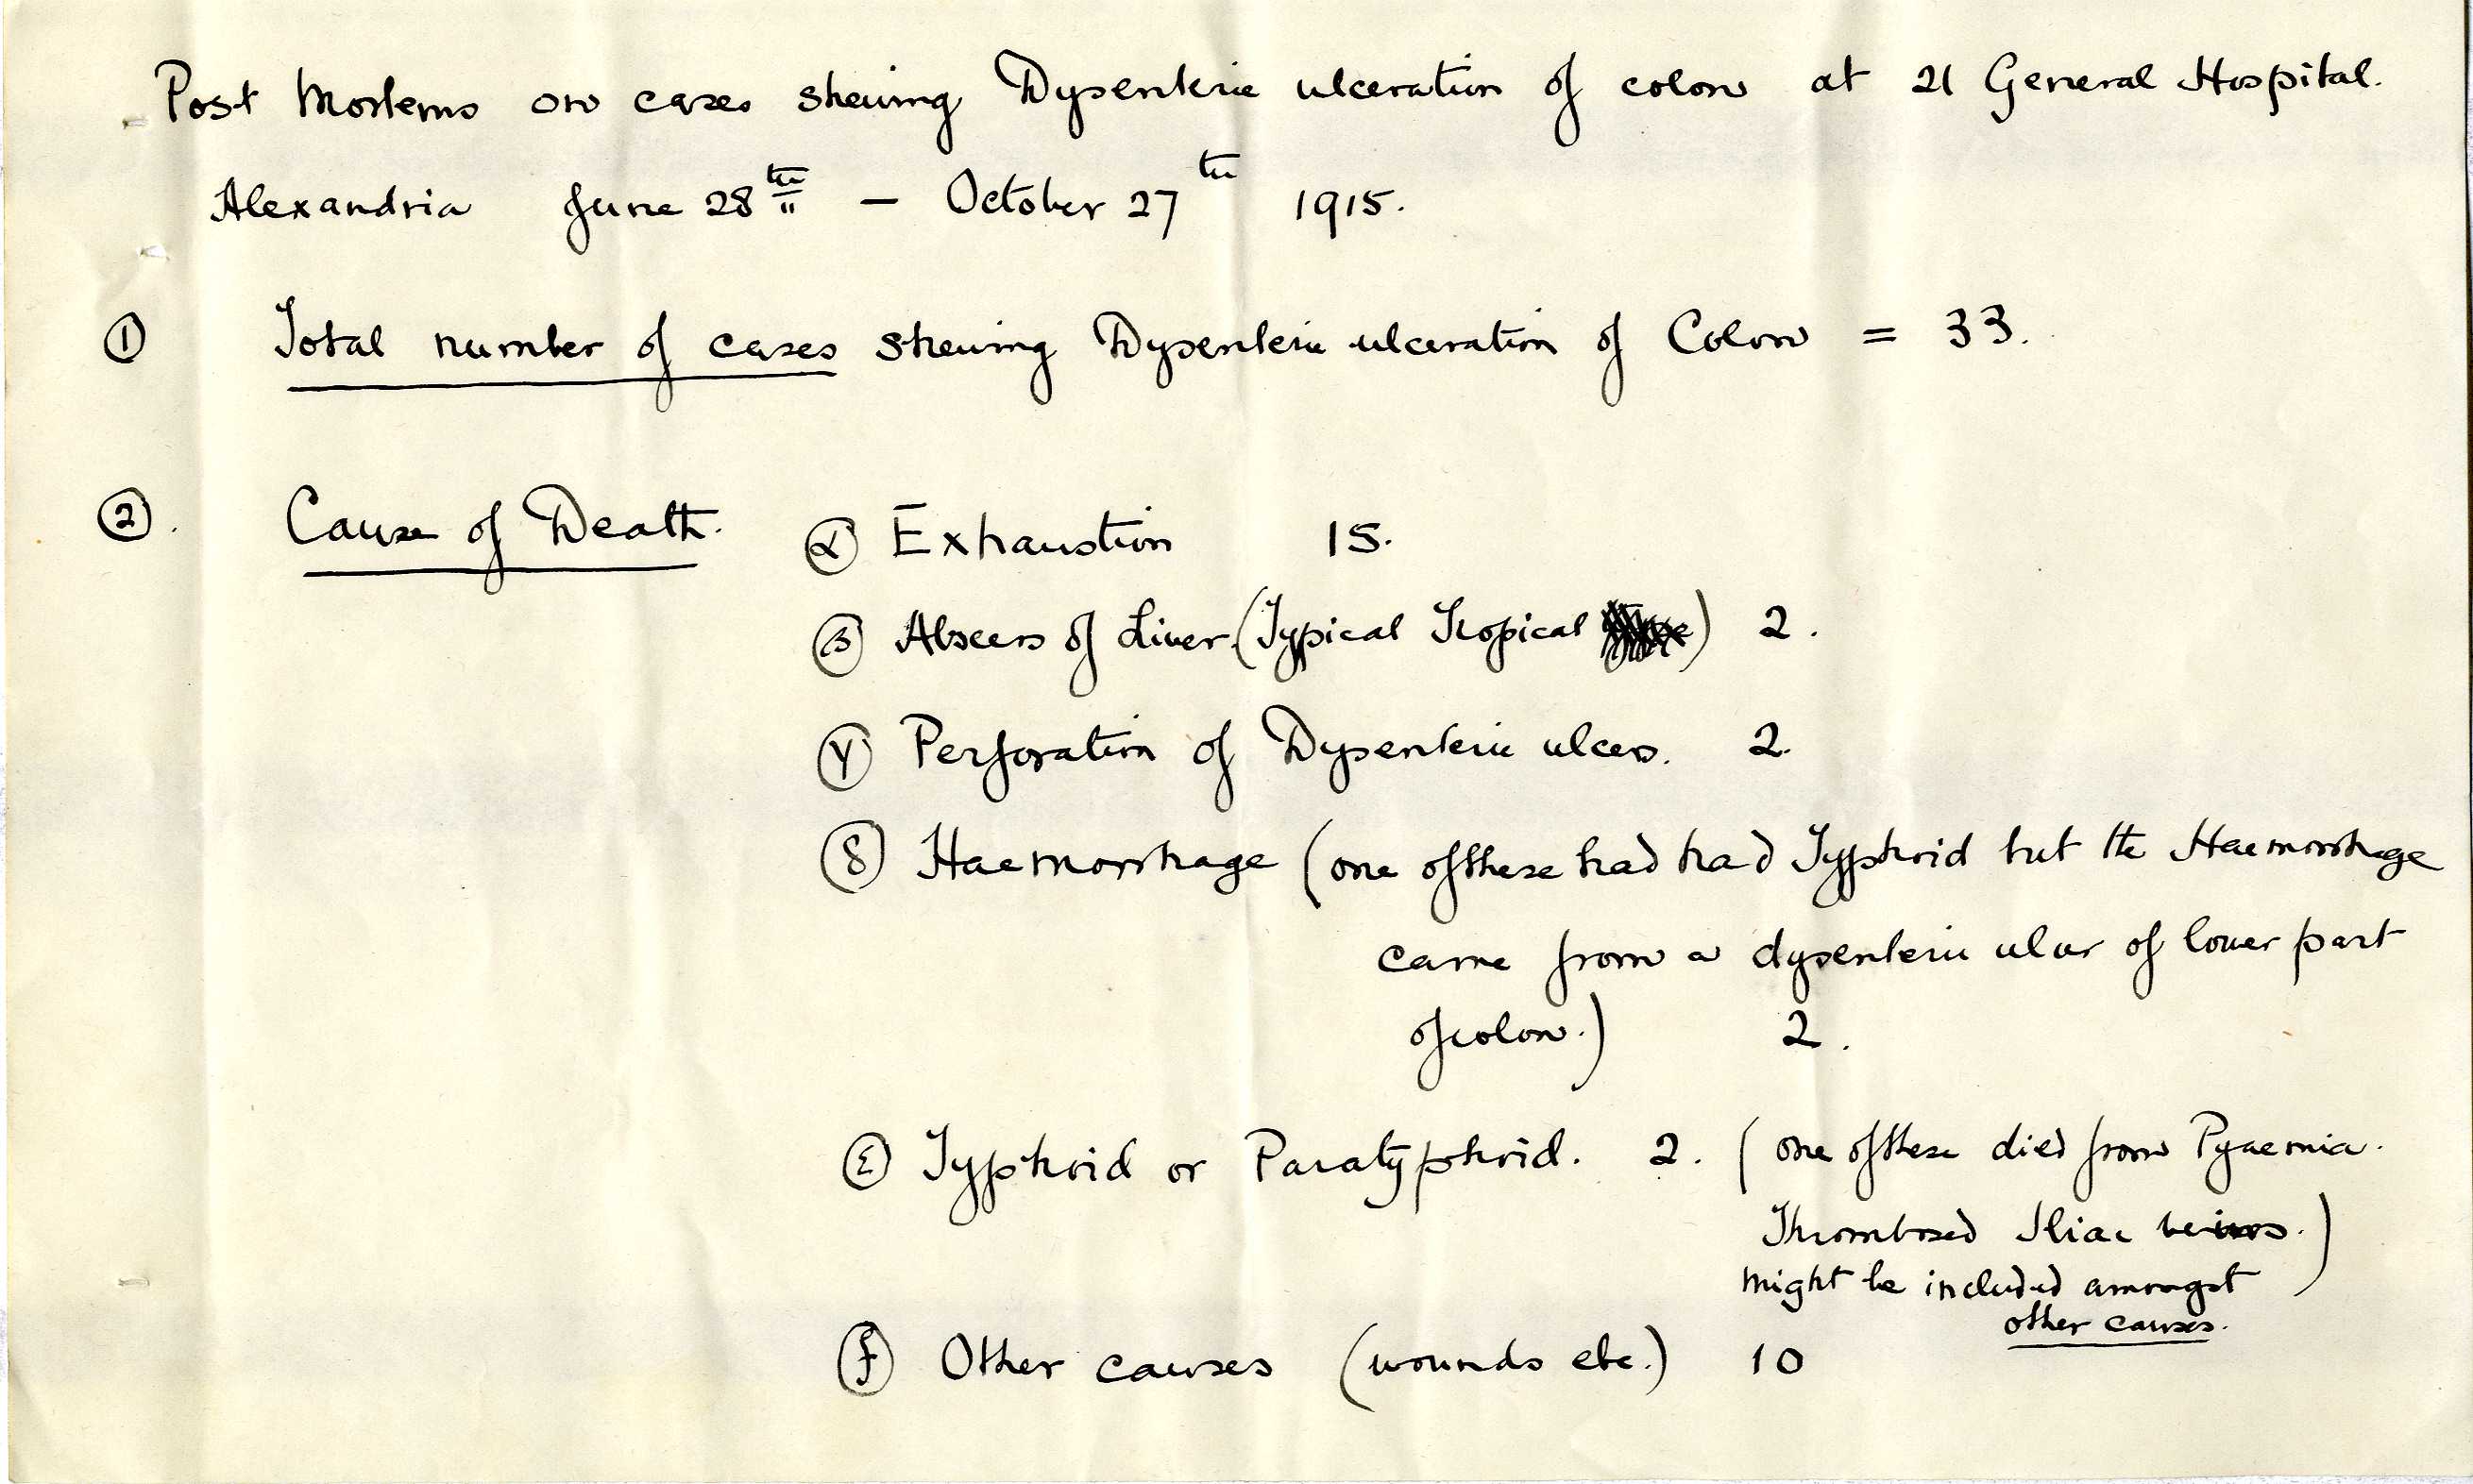 Post Mortems on cases shewing Dysenteric ulceration of colon at 21 General Hospital.
Alexandria June 28th – October 27th 1915.
① Total number of cases shewing Dysenteric ulceration of Colon = 33.
②. Cause of Death. α Exhaustion 15.
β Abscess of Liver. (Typical Tropical) 2.
γ Perforation of Dysenteric ulcers. 2.
δ Haemorrhage (one of these had had Typhoid but the Haemorrhage
came from a dysenteric ulcer of lower part
of colon.) 2.
ε Typhoid or Paratyphoid. 2. (one of these died from Pyaemia.
Thrombosed Iliac veins.)
might be included amongst
other causes.
f Other causes (wounds etc.) 10